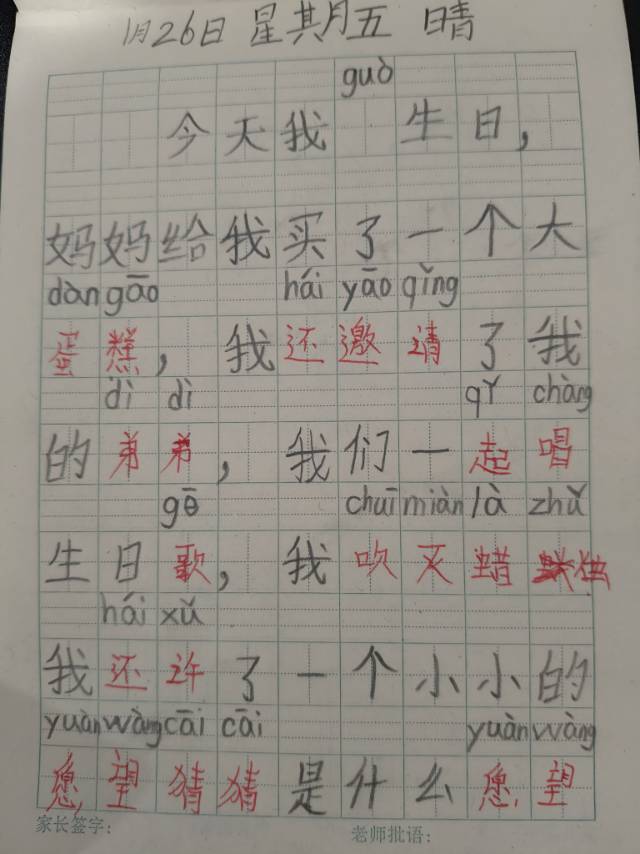 1月26日 星期五 晴
guò
今天我 生日，
妈妈给我买了一个大
dàn gāo hái yāo qǐng
蛋糕，我还邀请了我
dì dì qǐ chàng
的弟弟，我们一起唱
gē chuī miàn là zhǔ
生日歌，我吹灭蜡烛
hái xǔ
我还许了一个小小的
yuàn wàng cāi cāi yuàn wàng
愿望猜猜是什么愿望
家长签字： 老师批语：